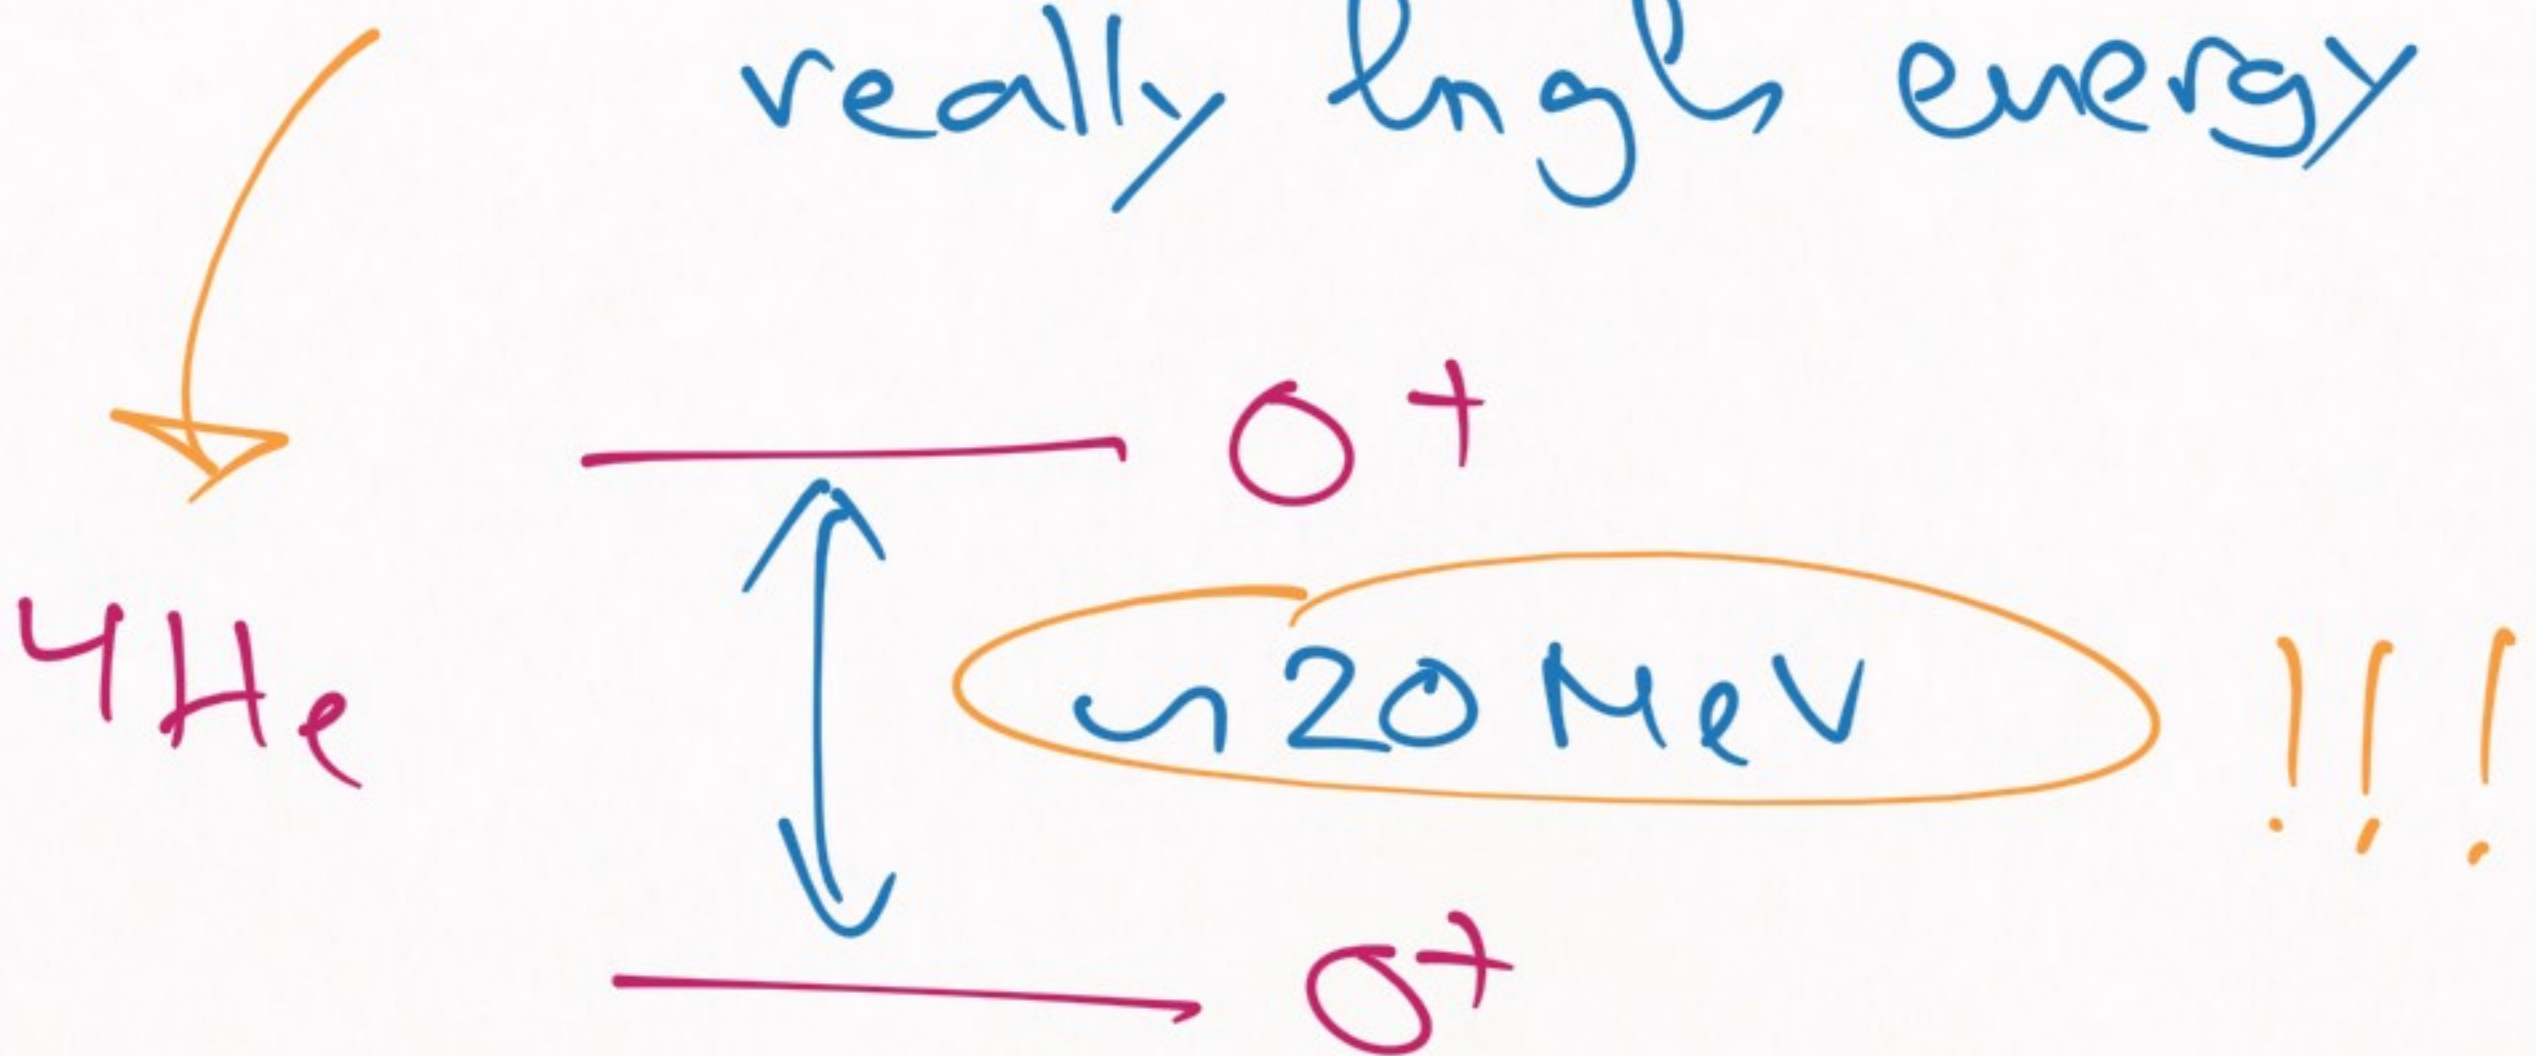 really high energy
0+
4He
~20 MeV !!!
0+